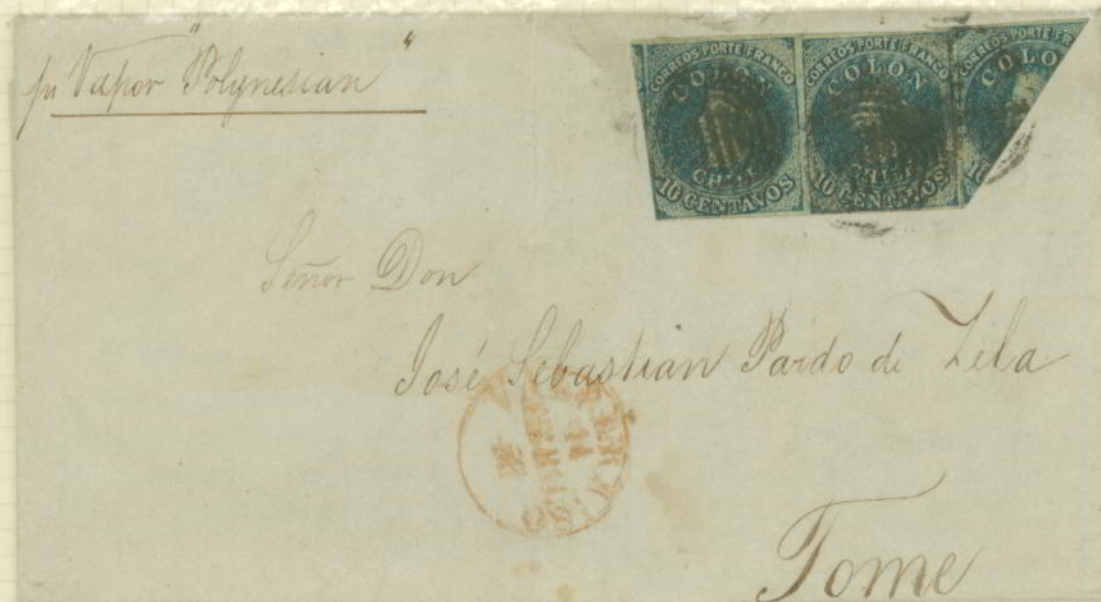 pr Vapor "Polynesian"
CORREOS PORTE FRANCO
COLON
CHILE
10 CENTAVOS
CORREOS PORTE FRANCO
COLON
CHILE
10 CENTAVOS
CORREOS PORTE FRANCO
COLON
Señor Don
José Sebastian Pardo de Zela
Tome